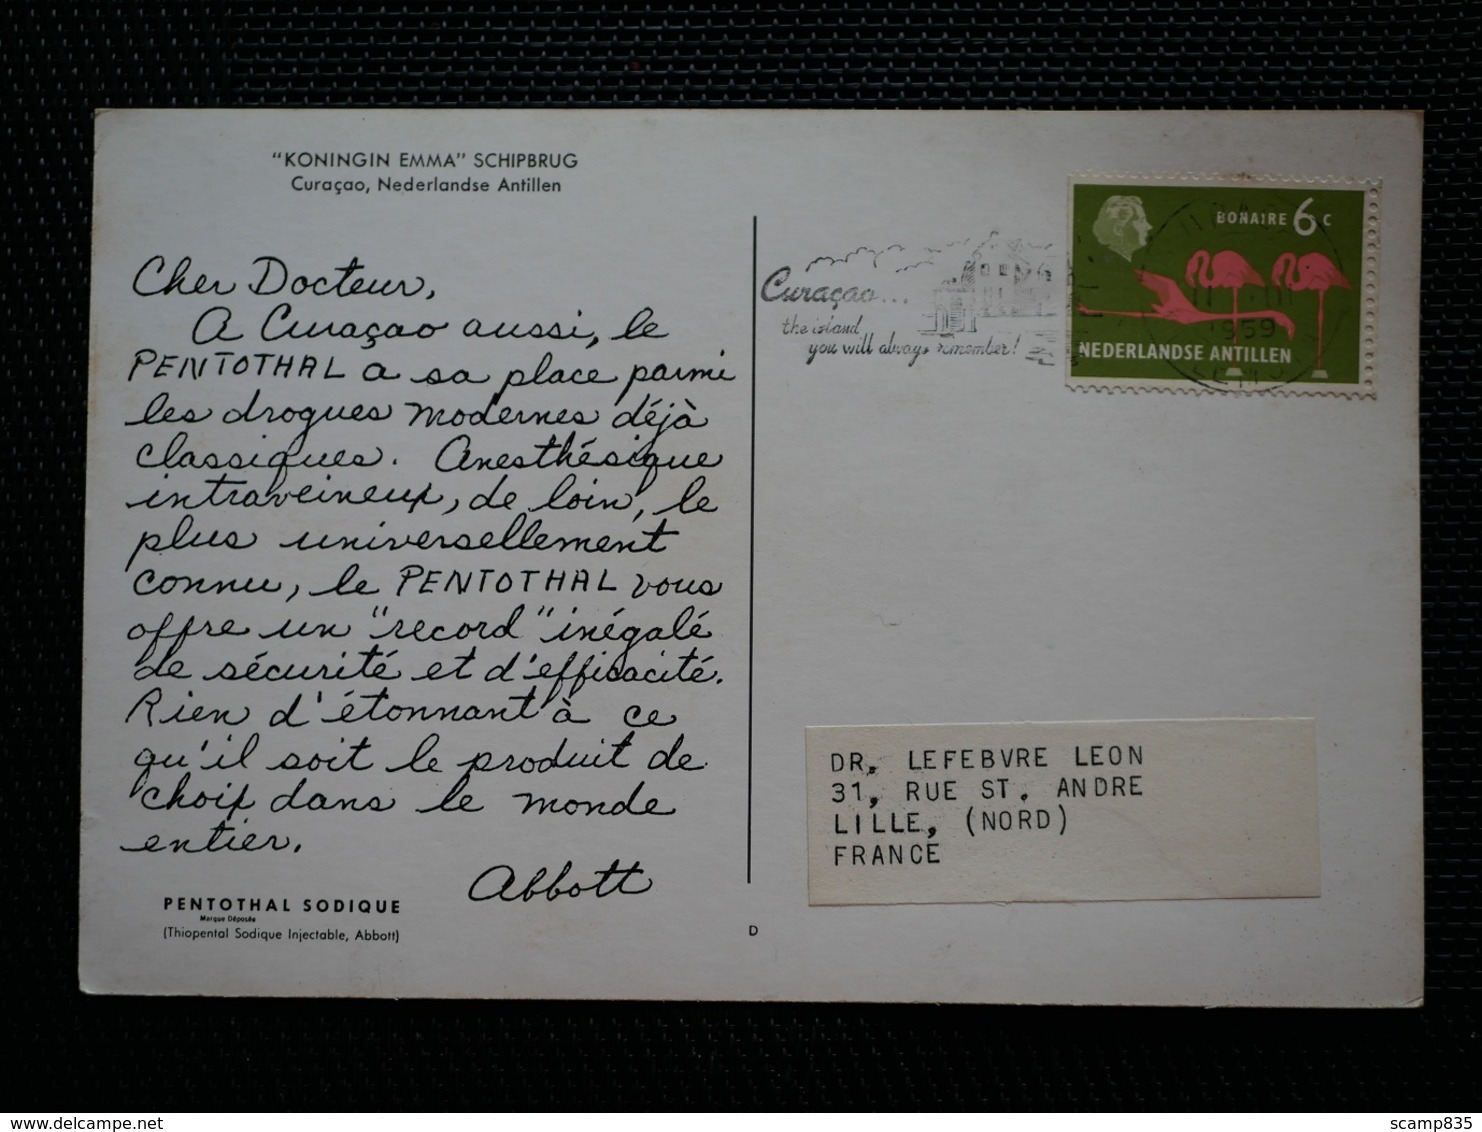 "KONINGIN EMMA" SCHIPBRUG
Curaçao, Nederlandse Antillen
Cher Docteur,
A Curaçao aussi, le
PENTOTHAL a sa place parmi
les drogues modernes déjà
classiques. Anesthésique
intraveineux, de loin, le
plus universellement
connu, le PENTOTHAL vous
offre un "record" inégalé
de sécurité et d'efficacité.
Rien d'étonnant à ce
qu'il soit le produit de
choix dans le monde
entier.
Abbott
PENTOTHAL SODIQUE
Marque Déposée
(Thiopental Sodique Injectable, Abbott)
D
Curaçao...
the island
you will always remember!
BONAIRE 6 C
1959
NEDERLANDSE ANTILLEN
DR. LEFEBVRE LEON
31, RUE ST. ANDRE
LILLE, (NORD)
FRANCE
delcampe.net
scamp835